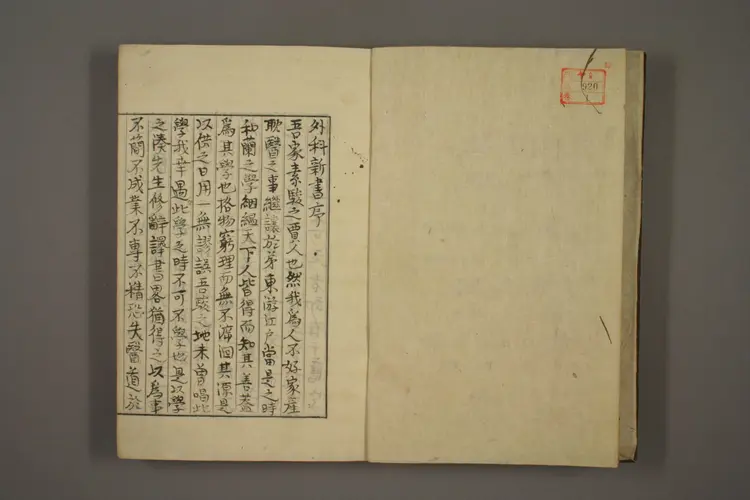 外科新書序
吾家素駿之賈人也然我為人不好家産
耽醫之事繼讓於弟東游江戸當是之時
和蘭之學絪縕天下人皆得而知其善蓋
為其學也格物窮理而無不泝洄其源是
以供之日用一無謬誤吾駿之地未曽唱此
學我幸遇此學之時不可不學也是以學
之湊先生修辭譯書畧猶得之以為事
不簡不成業不專不精恐失醫道於
920